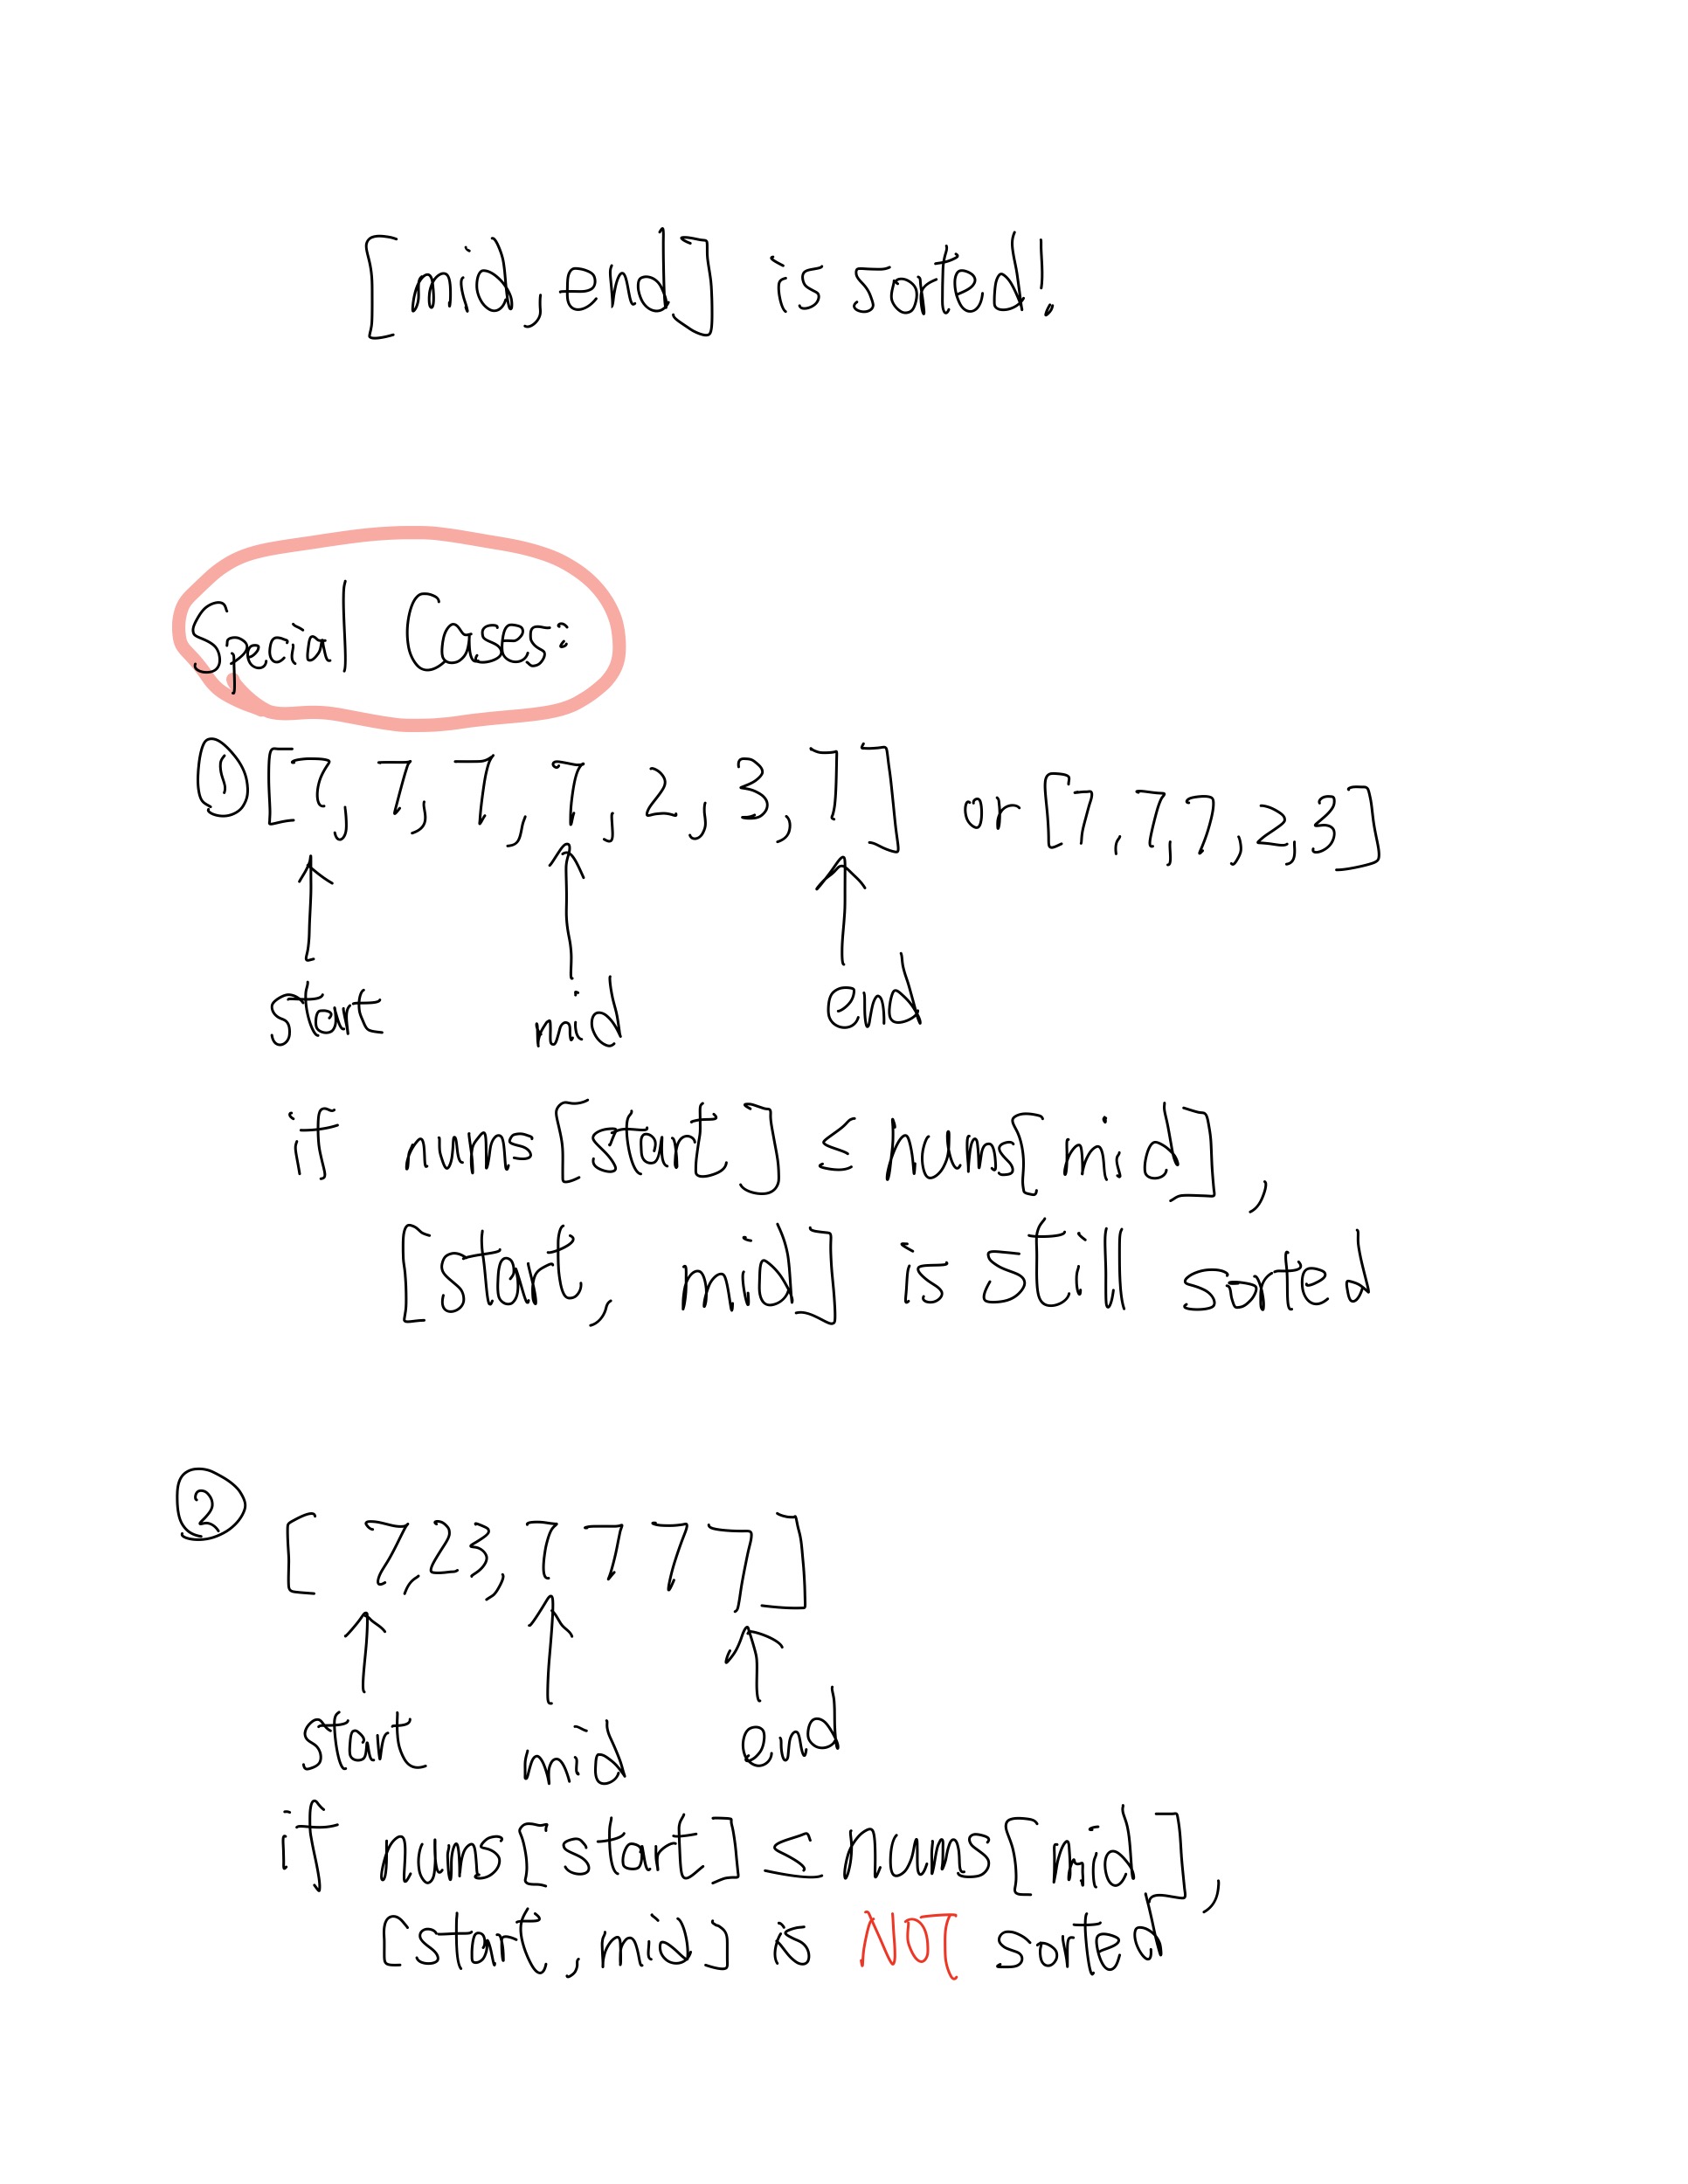 [mid, end] is sorted!
Special Cases:
① [7, 7, 7, 7, 2, 3, 7] or [7, 7, 7, 2, 3]
start mid end
if nums[start] ≤ nums[mid],
[start, mid] is still sorted
② [7, 2 3, 7 7 7 7]
start mid end
if nums[start] ≤ nums[mid],
[start, mid] is NOT sorted